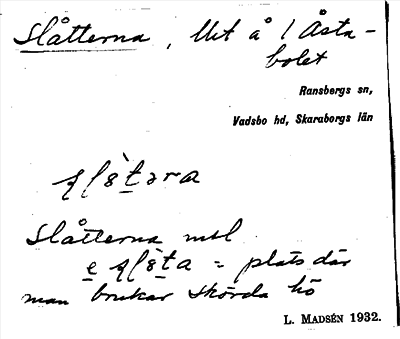 Slåtterna, Ut å / Åsta-
bolet
Ransbergs sn,
Vadsbo hd, Skaraborgs län
Slåtterna msl
= plats där
man brukar skörda hö
L. MADSÉN 1932.